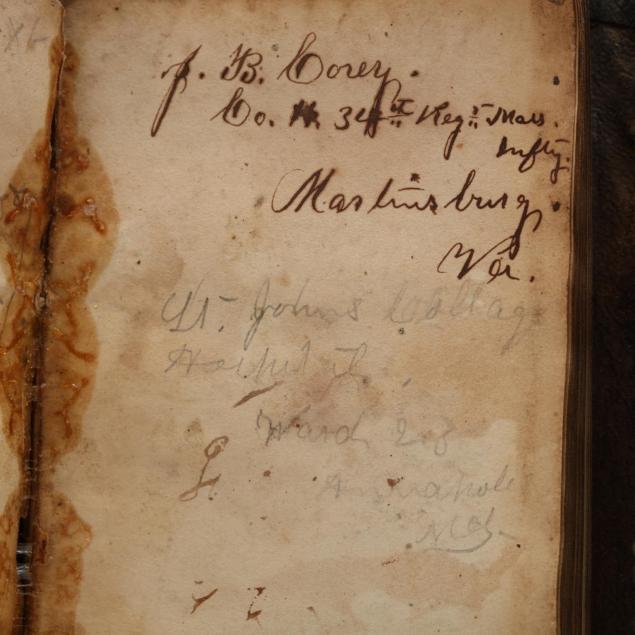 J. B. Corey.
Co. H. 34th Regt Mass.
Infty.
Martinsburg,
Va.
St. Johns Collag
Hospital.
Ward 2.
Annapole
Md.